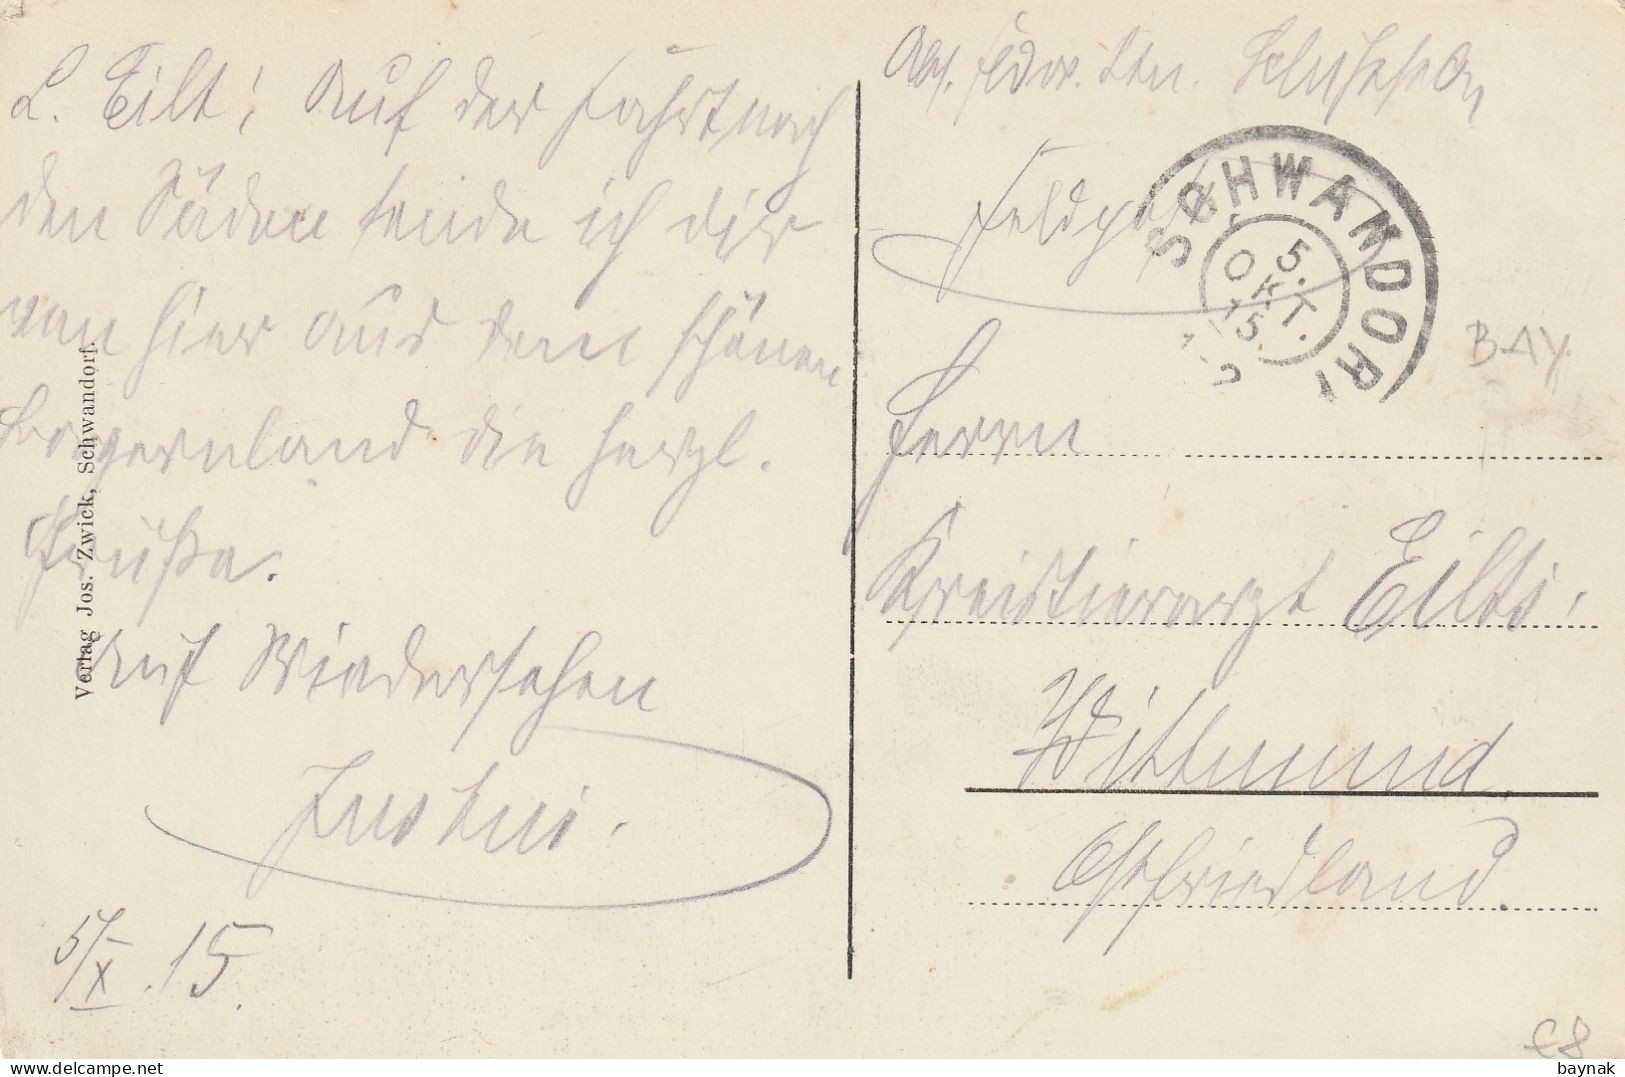 L. Eilt! Auf der Fahrt nach
den Süden sende ich dir
von hier aus dem schönen
Bayernland die herzl.
Grüße.
Auf Wiedersehen
Justus.
5/X.15.
Verlag Jos. Zwick, Schwandorf.
Abs. Ltn.
Feldpost
SCHWANDORF
5.
OKT.
15.
BAY.
Herrn
Kreistierarzt Eilts,
Wittmund
Ostfriesland.
€8
baynak